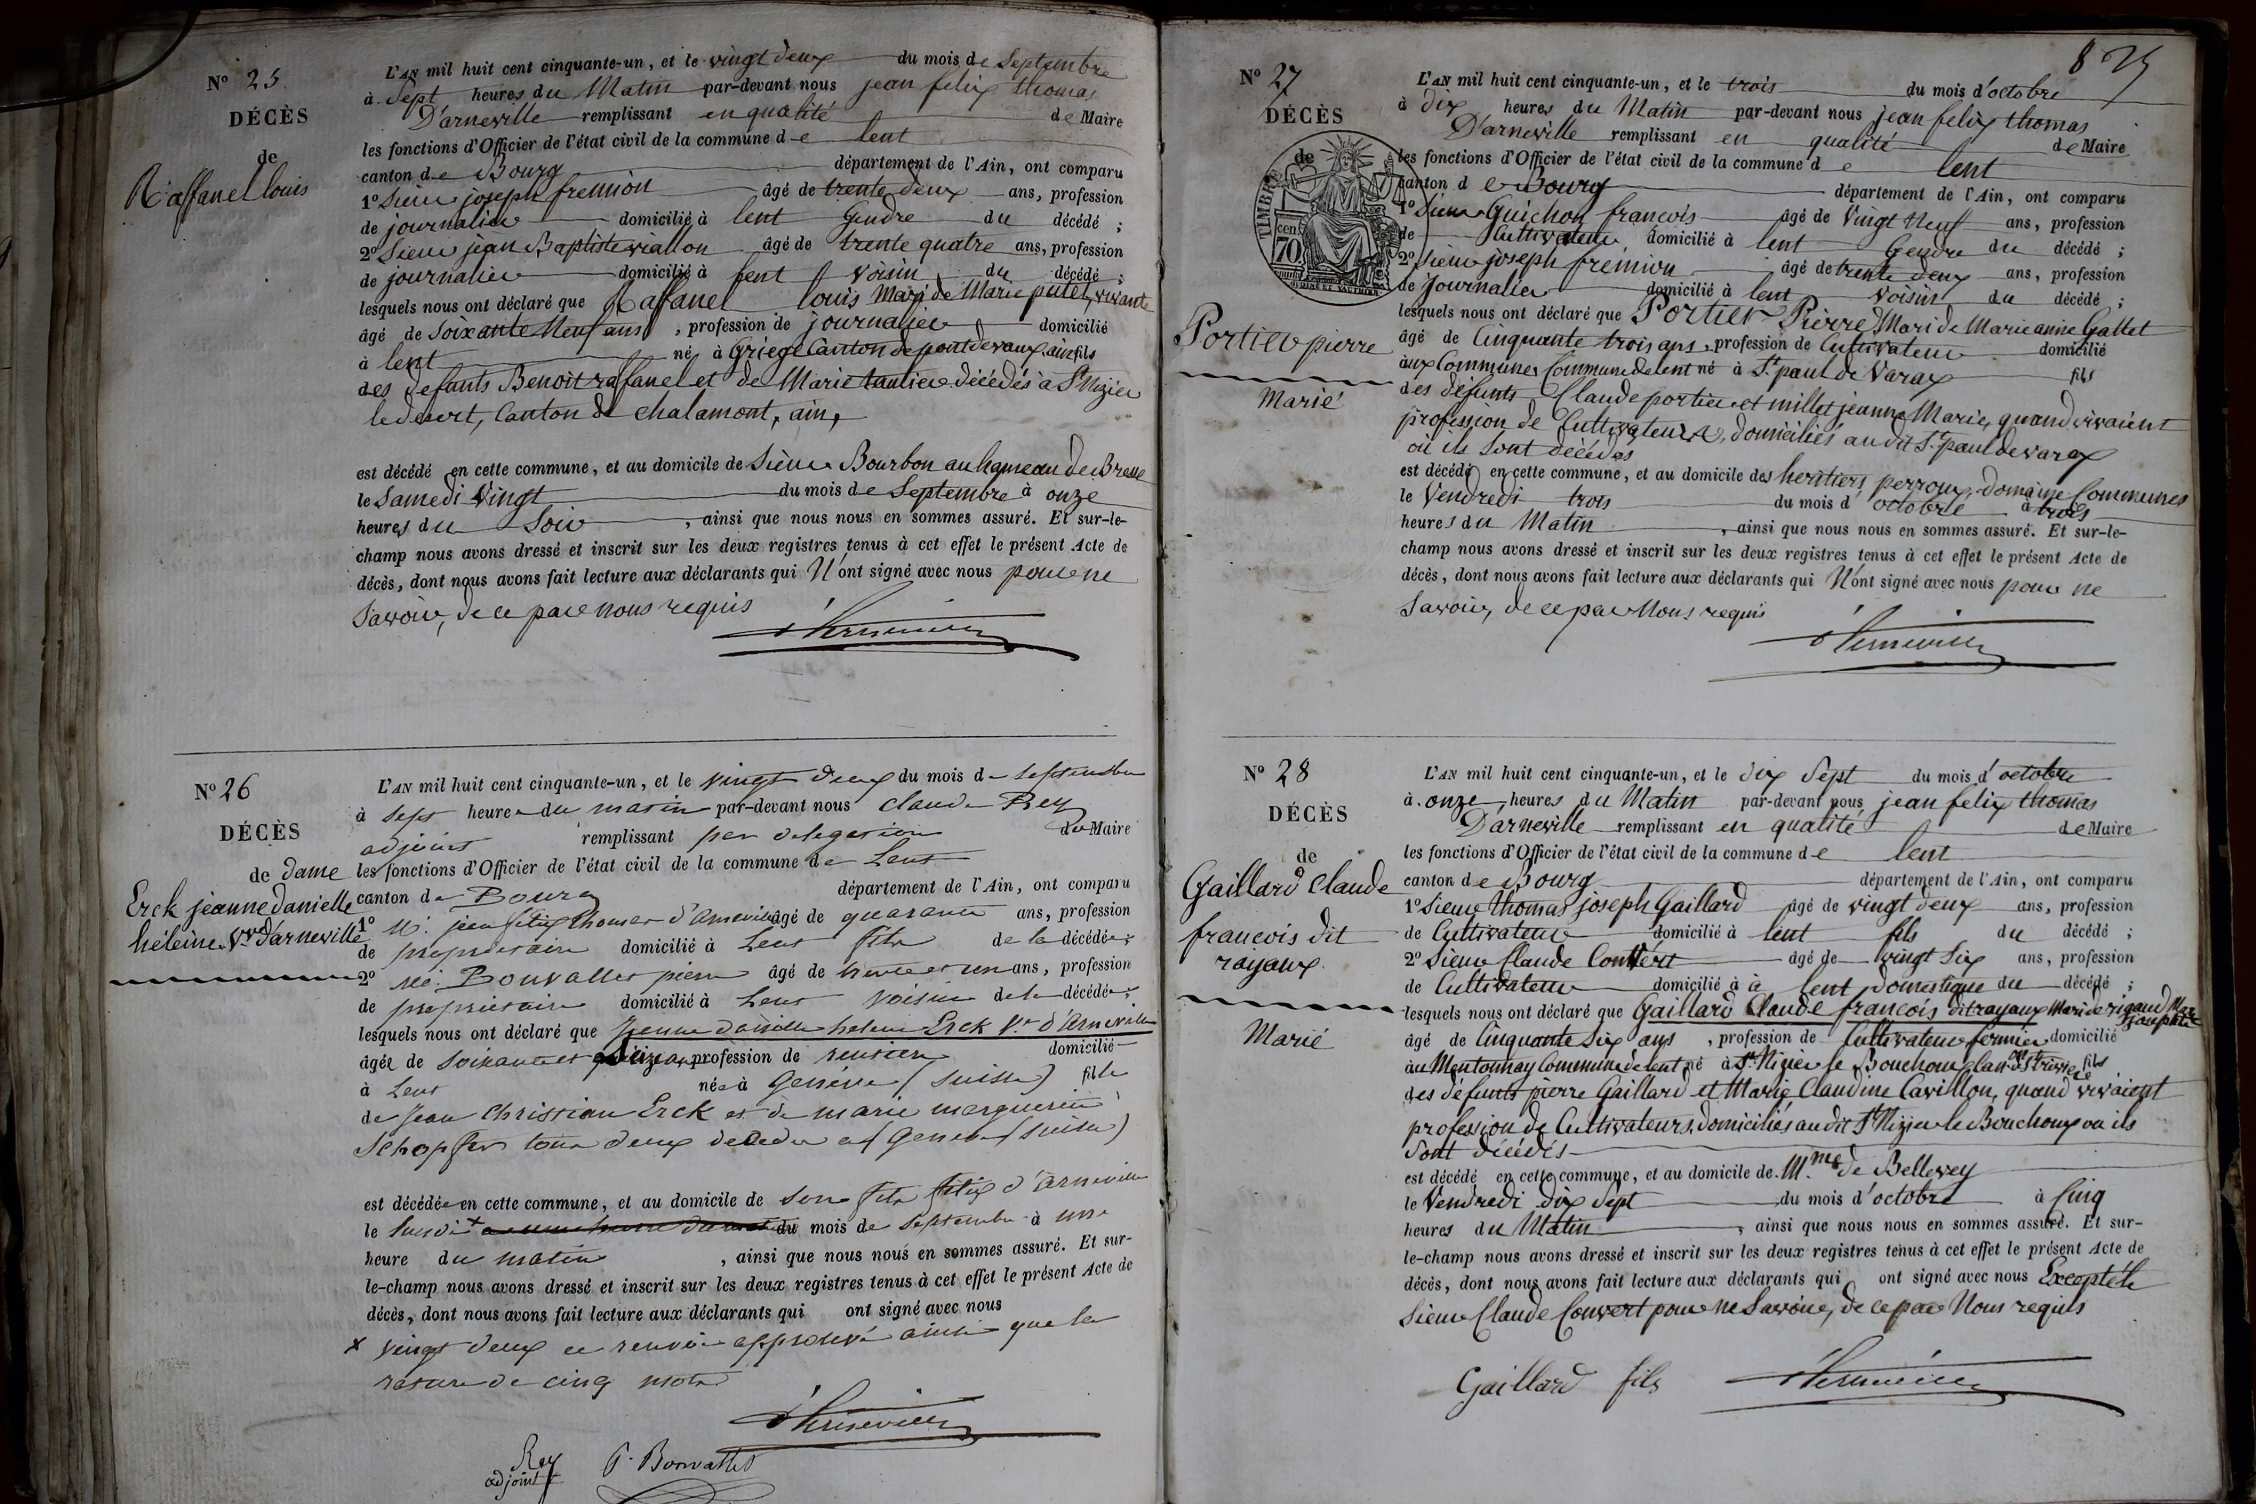 N° 25.
DÉCÈS
de
Raffanel louis
L'AN mil huit cent cinquante-un, et le vingt deux du mois de Septembre
à Sept heures du Matin par-devant nous jean felix thomas
D'arneville remplissant en qualité de Maire
les fonctions d'Officier de l'état civil de la commune de lent
canton de Bourg département de l'Ain, ont comparu
1° Sieur joseph fremion âgé de trente deux ans, profession
de journalier domicilié à lent Gendre du décédé ;
2° Sieur jean Baptiste viallon âgé de trente quatre ans, profession
de journalier domicilié à lent voisin du décédé ;
lesquels nous ont déclaré que Raffanel louis Mari de Marie putet, vivante
âgé de soixante Neuf ans, profession de journalier domicilié
à lent né à Griege Canton de pont de vaux, ain fils
des defunts Benoit raffanel et de Marie taulier décédés à St Nizier
le desert, Canton de chalamont, ain,
est décédé en cette commune, et au domicile de Sieur Bourbon au hameau de Bresse
le Samedi Vingt du mois de Septembre à onze
heures du Soir, ainsi que nous nous en sommes assuré. Et sur-le-
champ nous avons dressé et inscrit sur les deux registres tenus à cet effet le présent Acte de
décès, dont nous avons fait lecture aux déclarants qui N'ont signé avec nous pour ne
Savoir, de ce par nous requis
d'arneville
N° 26
DÉCÈS
de dame
Erck jeanne danielle
héleine Vve d'arneville
L'AN mil huit cent cinquante-un, et le vingt deux du mois de septembre
à sept heures du matin par-devant nous claude Rey
adjoint remplissant par delegation du Maire
les fonctions d'Officier de l'état civil de la commune de Lent
canton de Bourg département de l'Ain, ont comparu
1° M. jean felix thomas d'arneville âgé de quarante ans, profession
de propriétaire domicilié à Lent fils de la décédée ;
2° M. Bonvallet pierre âgé de trente et un ans, profession
de propriétaire domicilié à Lent voisin de la décédée ;
lesquels nous ont déclaré que Jeanne danielle helene Erck Ve d'Arneville
âgée de soixante et ans, profession de rentiere domicilié
à Lent née à Genéve (suisse) fille
de Jean Christian Erck et de marie marguerite
Schopfer tous deux decedes a Geneve (suisse)
est décédée en cette commune, et au domicile de son fils felix d'arneville
le susdit du mois de septembre à une
heure du matin, ainsi que nous nous en sommes assuré. Et sur-
le-champ nous avons dressé et inscrit sur les deux registres tenus à cet effet le présent Acte de
décès, dont nous avons fait lecture aux déclarants qui ont signé avec nous
x vingt deux ce renvoi approuvé ainsi que la
rature de cinq mots
d'arneville
Rey P. Bonvallet
adjoint
825
N° 27
DÉCÈS
de
TIMBRE
cent 70
Portier pierre
Marié
L'AN mil huit cent cinquante-un, et le trois du mois d'octobre
à dix heures du Matin par-devant nous jean felix thomas
D'arneville remplissant en qualité de Maire
les fonctions d'Officier de l'état civil de la commune de lent
canton de Bourg département de l'Ain, ont comparu
1° Sieur Guichon francois âgé de Vingt Neuf ans, profession
de Cultivateur domicilié à lent Gendre du décédé ;
2° Sieur joseph fremion âgé de trente deux ans, profession
de journalier domicilié à lent voisin du décédé ;
lesquels nous ont déclaré que Portier Pierre, Mari de Marie anne Gallet
âgé de Cinquante trois ans, profession de Cultivateur domicilié
aux Communes Commune de lent né à St paul de Varax fils
des défunts Claude portier et millet jeanne Marie, quand vivaient
profession de Cultivateurs, domiciliés au dit St paul de varax
où ils sont décédés
est décédé en cette commune, et au domicile des heritiers perroux, domaine Communes
le Vendredi trois du mois d'octobre à trois
heures du Matin, ainsi que nous nous en sommes assuré. Et sur-le-
champ nous avons dressé et inscrit sur les deux registres tenus à cet effet le présent Acte de
décès, dont nous avons fait lecture aux déclarants qui N'ont signé avec nous pour ne
Savoir, de ce par Nous requis
d'arneville
N° 28
DÉCÈS
de
Gaillard Claude
francois dit
rayaux
Marié
L'AN mil huit cent cinquante-un, et le dix Sept du mois d'octobre
à onze heures du Matin par-devant nous jean felix thomas
D'arneville remplissant en qualité de Maire
les fonctions d'Officier de l'état civil de la commune de lent
canton de Bourg département de l'Ain, ont comparu
1° Sieur thomas joseph Gaillard âgé de vingt deux ans, profession
de Cultivateur domicilié à lent fils du décédé ;
2° Sieur Claude Convert âgé de vingt Six ans, profession
de Cultivateur domicilié à à lent domestique du décédé ;
lesquels nous ont déclaré que Gaillard Claude francois dit rayaux Mari de rigaud
âgé de Cinquante Six ans, profession de Cultivateur fermier domicilié
au Montonnay Commune de lent né à St Nizier le Bouchoux, fils
des défunts pierre Gaillard et Marie Claudine Cavillon, quand vivaient
profession de Cultivateurs, domiciliés au dit St Nizier le Bouchoux ou ils
Sont décédés
est décédé en cette commune, et au domicile de Mme de Bellevey
le Vendredi dix Sept du mois d'octobre à Cinq
heures du Matin, ainsi que nous nous en sommes assuré. Et sur-
le-champ nous avons dressé et inscrit sur les deux registres tenus à cet effet le présent Acte de
décès, dont nous avons fait lecture aux déclarants qui ont signé avec nous Excepté le
Sieur Claude Convert pour ne Savoir, de ce par Nous requis
Gaillard fils d'arneville